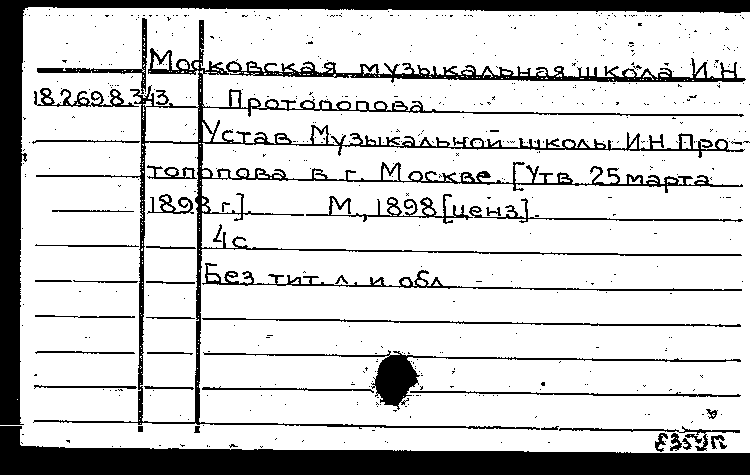 Московская музыкальная школа И.Н.
18.269.8.343. Протопопова.
Устав Музыкальной школы И.Н. Про-
топопова в г. Москве. [Утв. 25 марта
1898 г.]. М., 1898 [ценз].
4 с.
Без тит. л. и обл.